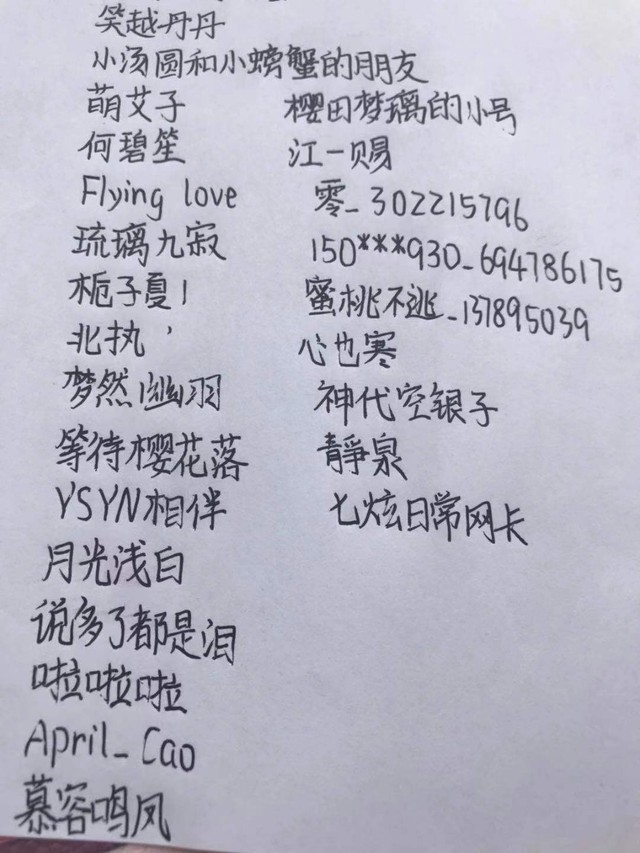 笑越丹丹
小汤圆和小螃蟹的朋友
萌艾子
何碧笙
Flying love
琉璃九寂
栀子夏1
北执,
梦然幽羽
等待樱花落
YSYN相伴
月光浅白
说多了都是泪
啦啦啦
April_Cao
慕容鸣凤
樱田梦璃的小号
江一赐
零_302215796
150***930_694786175
蜜桃不逃_137895039
心也寒
神代空银子
靜泉
七炫日常网卡